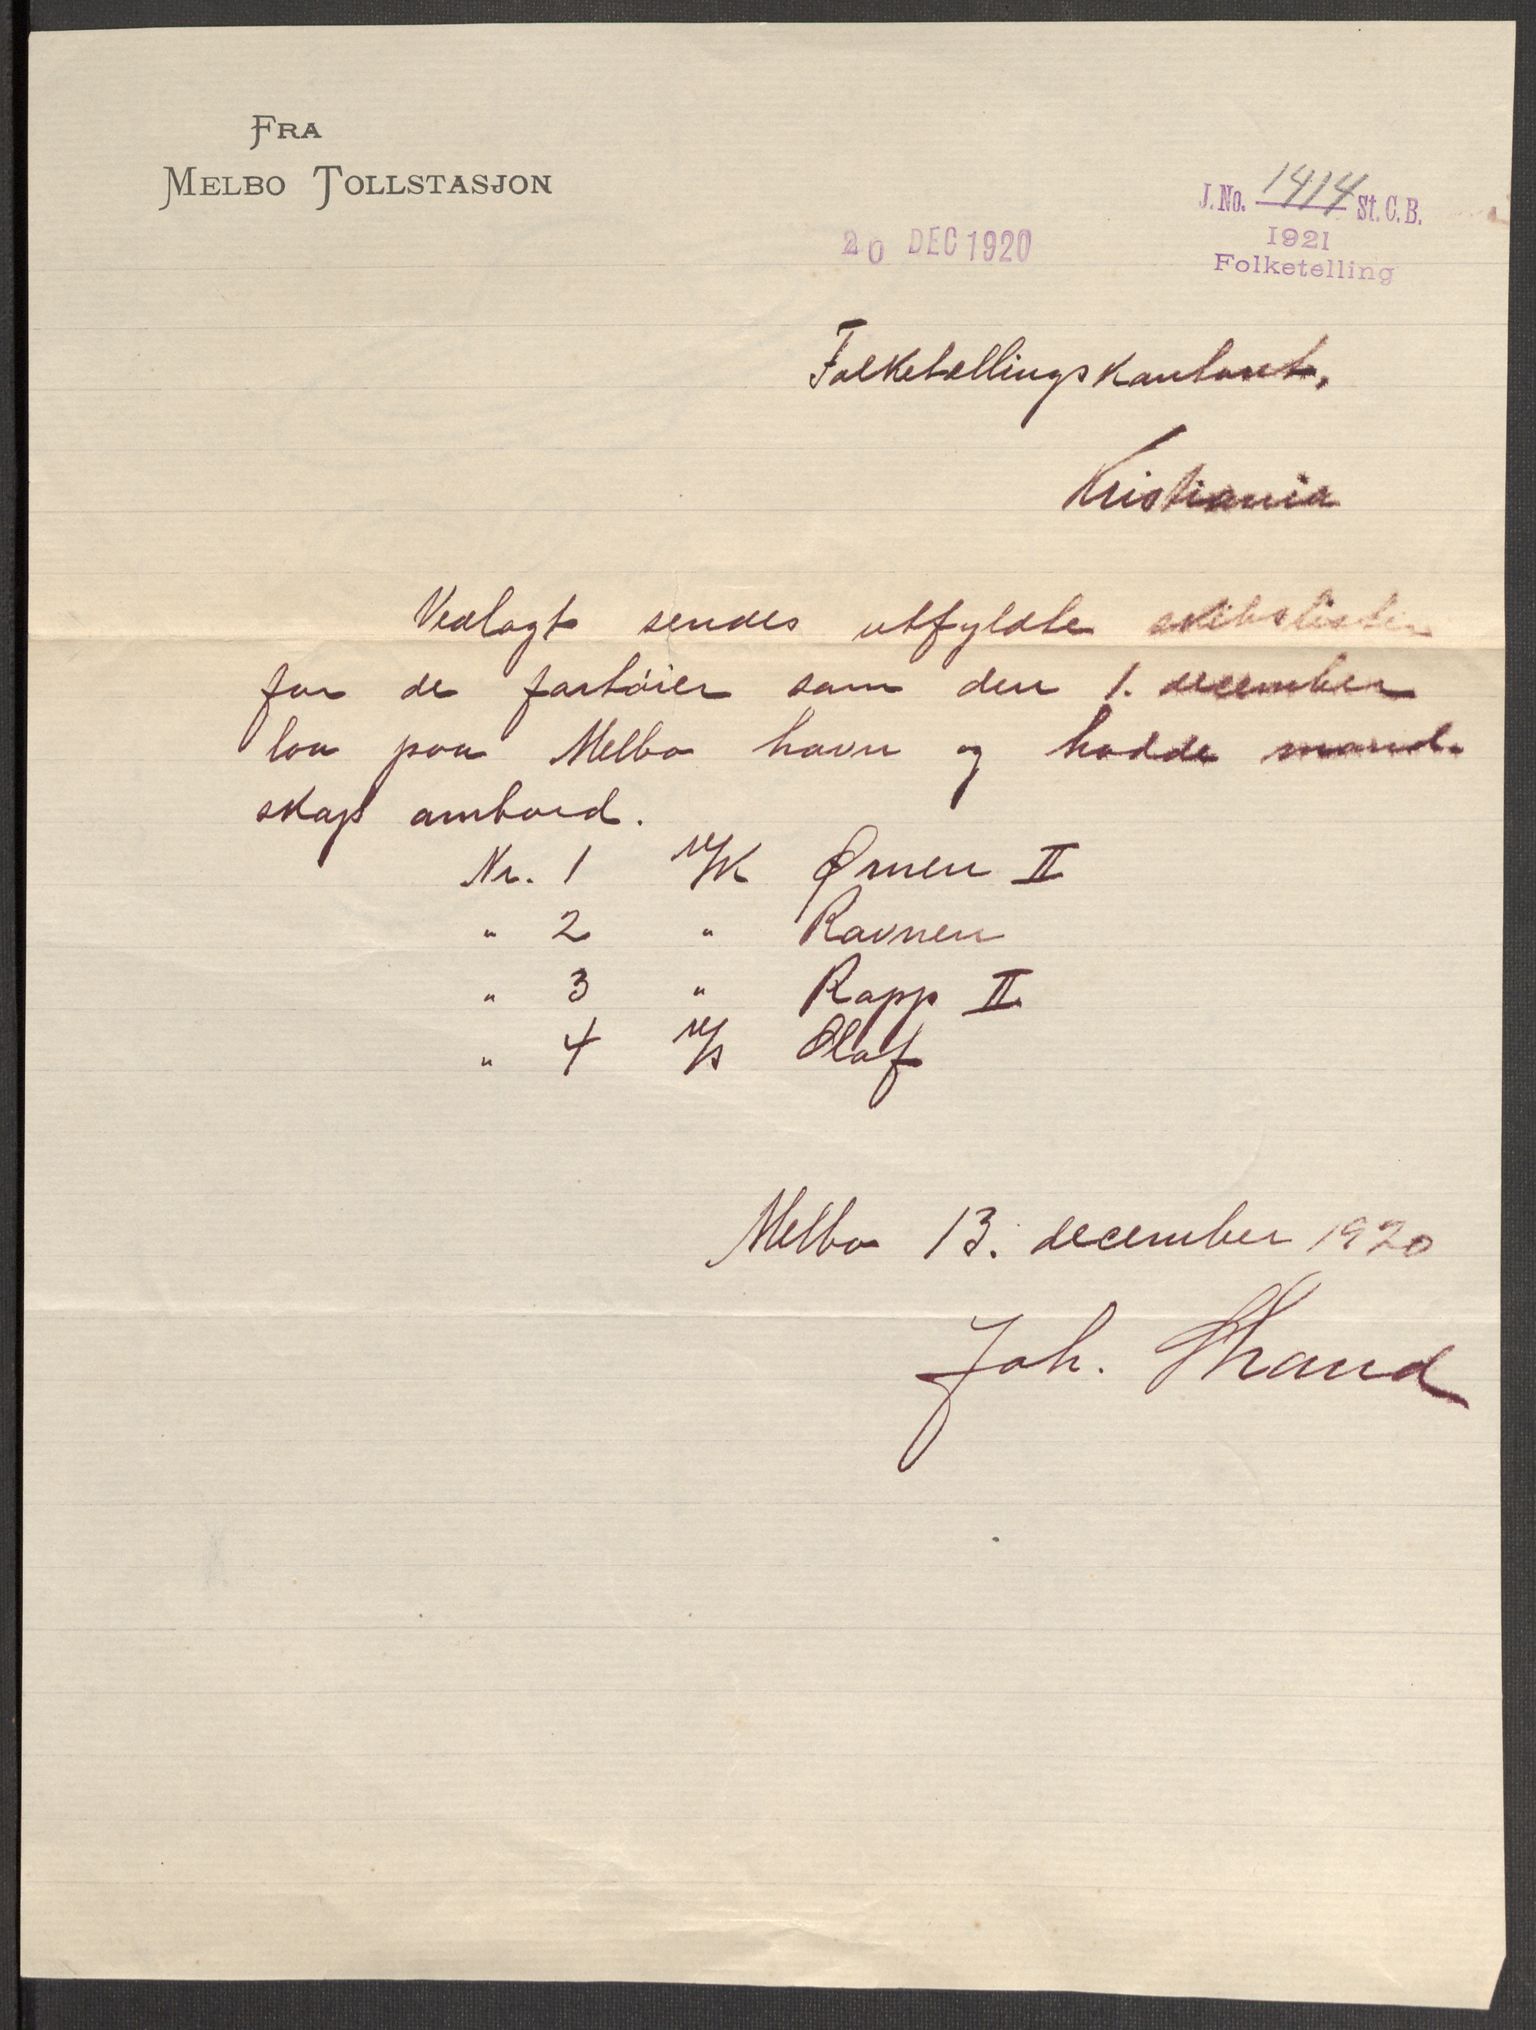 FRA
MELBO TOLLSTASJON
J. No. 1414 St. C. B.
1921
Folketelling
20 DEC 1920
Folketællingskontoret,
Kristiania
Vedlagt sendes utfyldte skibslister
for de fartøier som den 1. december
laa paa Melbo havn og hadde mand-
skap ombord.
Nr. 1 M/K Ørnen II
" 2 " Ravnen
" 3 " Rapp II
" 4 M/S Olaf
Melbo 13. december 1920
Joh. Strand